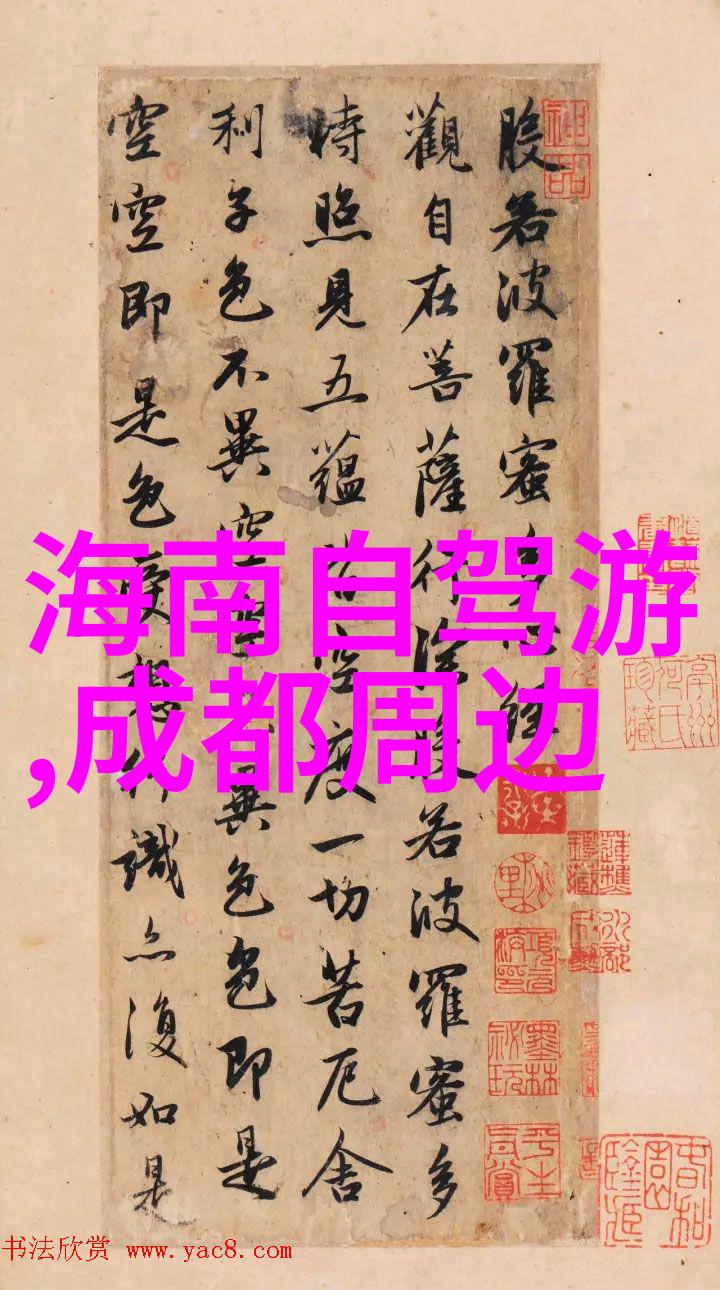 般若波羅蜜多心經
觀自在菩薩行深般若波羅蜜多
時照見五蘊皆空度一切苦厄舍
利子色不異空空不異色色即是
空空即是色受想行識亦復如是
海南自驾游
,成都周边
神品
墨林
秘玩
书法欣赏 www.yac8.com